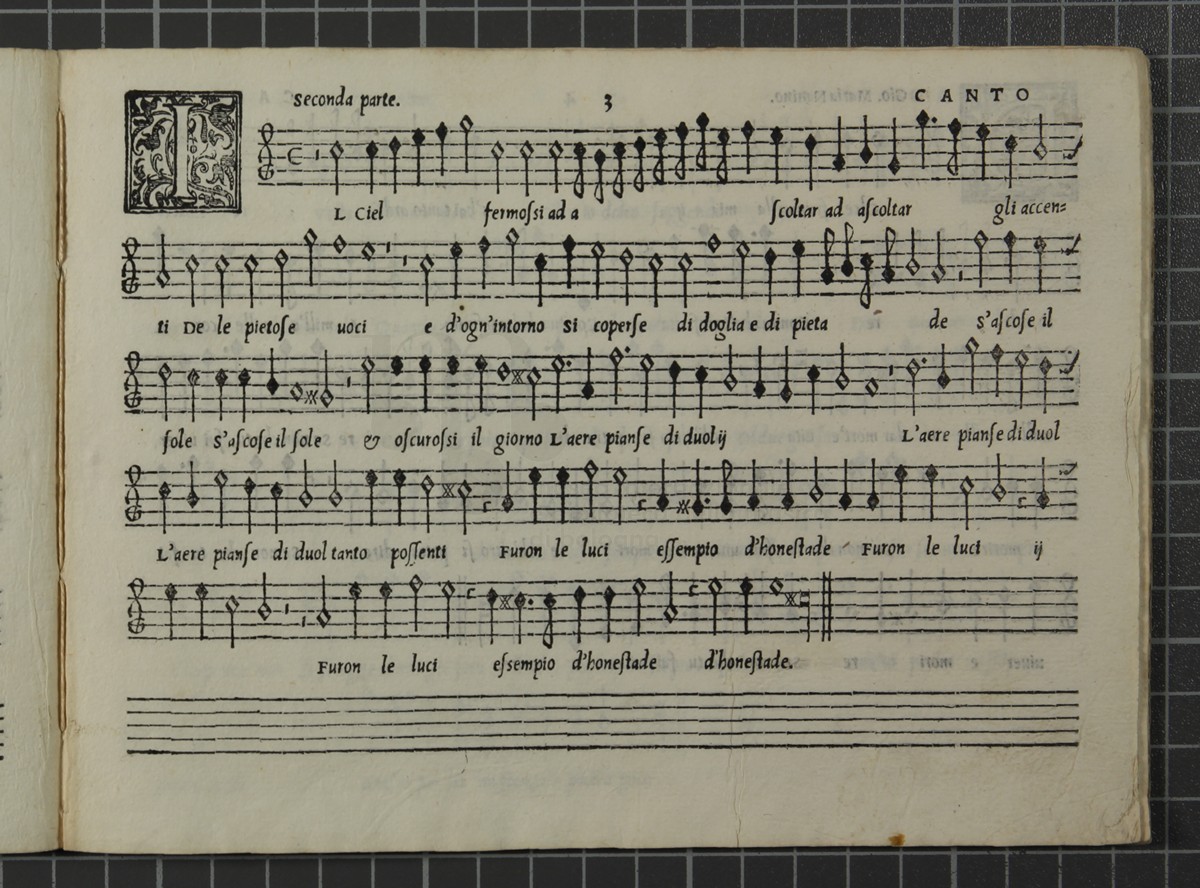 Seconda parte. 3 CANTO
IL Ciel fermoſsi ad a ſcoltar ad aſcoltar gli accen=
ti De le pietoſe uoci e d'ogn'intorno Si coperſe di doglia e di pieta de S'aſcoſe il
ſole S'aſcoſe il ſole & oſcuroſsi il giorno L'aere pianſe di duol ij L'aere pianſe di duol
L'aere pianſe di duol tanto poſſenti Furon le luci eſſempio d'honeſtade Furon le luci ij
Furon le luci eſsempio d'honeſtade d'honeſtade.